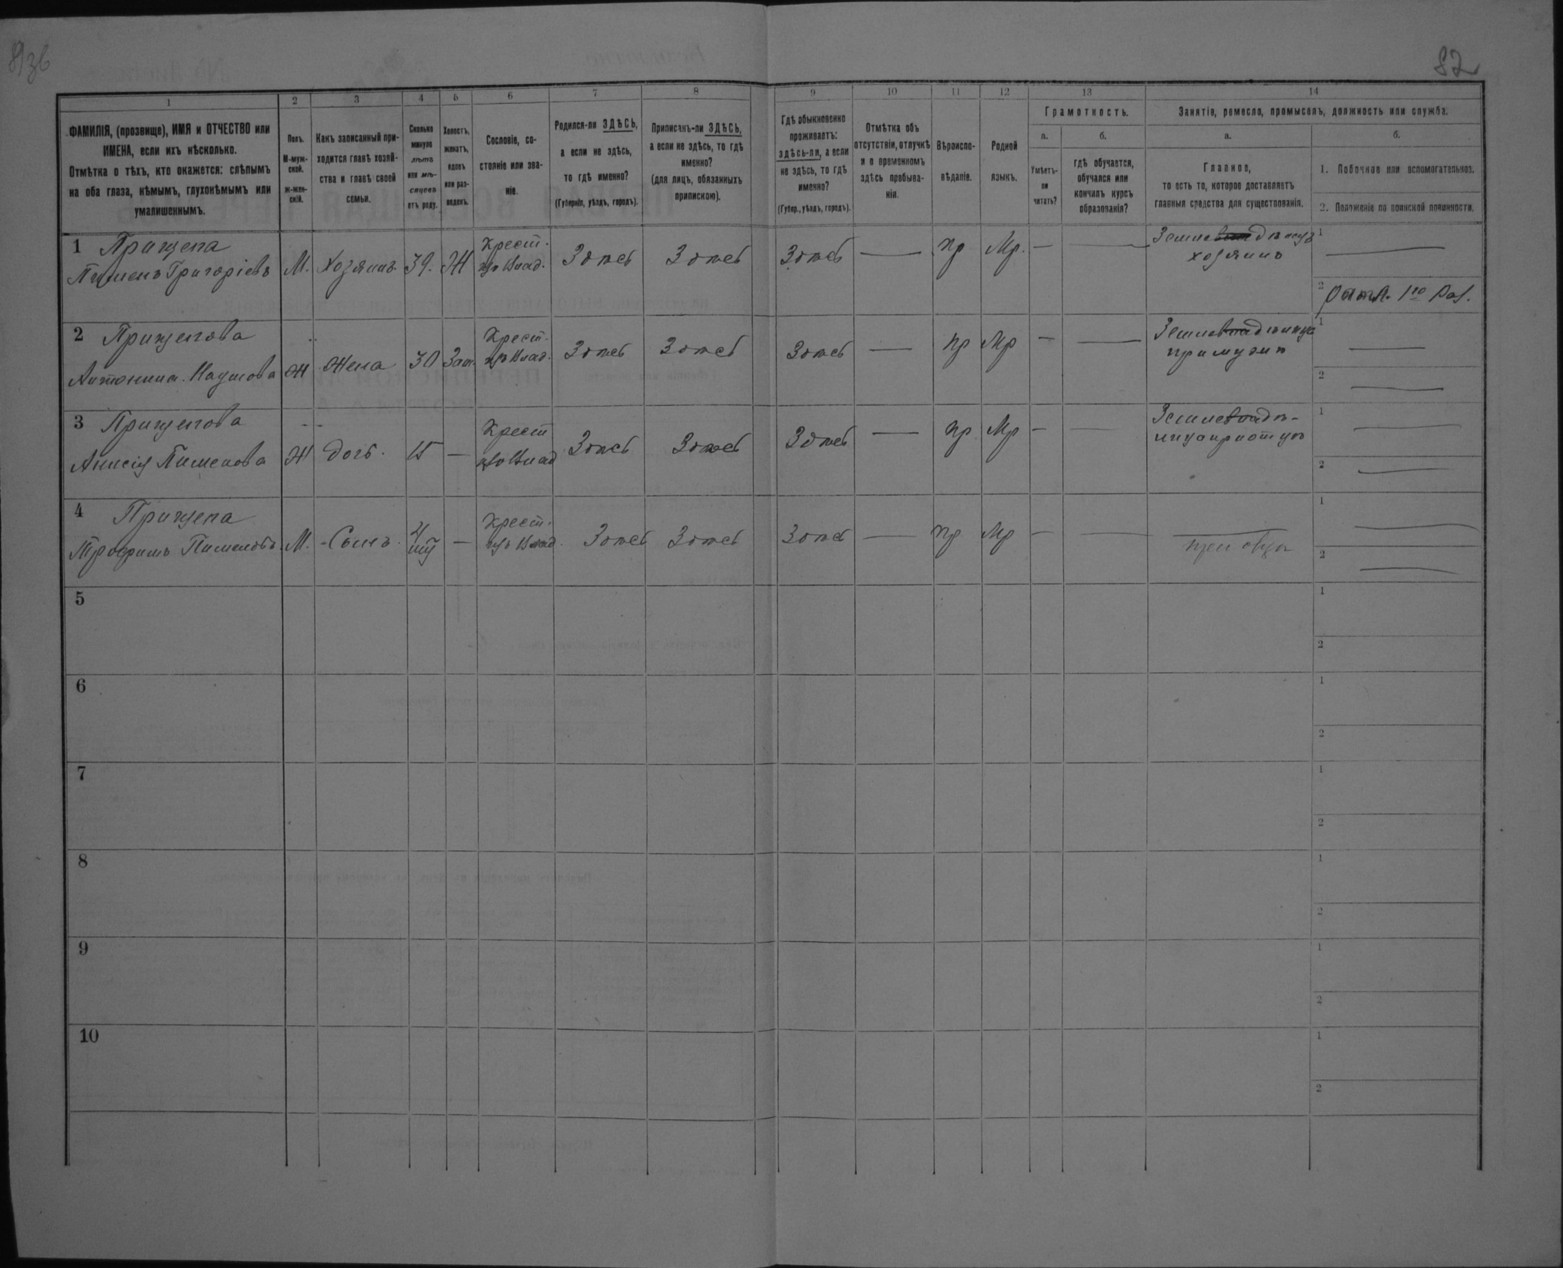 82
1
2
3
4
5
6
7
8
9
10
11
12
13
14
ФАМИЛІЯ, (прозвище), ИМЯ и ОТЧЕСТВО или
ИМЕНА, если ихъ нѣсколько.
Отмѣтка о тѣхъ, кто окажется: слѣпымъ
на оба глаза, нѣмымъ, глухонѣмымъ или
умалишеннымъ.
Полъ.
М-муж-
ской.
Ж-жен-
скій.
Какъ записанный при-
ходится главѣ хозяй-
ства и главѣ своей
семьи.
Сколько
минуло
лѣтъ
или мѣ-
сяцевъ
отъ роду.
Холостъ,
женатъ,
вдовъ
или раз-
веденъ.
Сословіе, со-
стояніе или зва-
ніе.
Родился-ли ЗДѢСЬ,
а если не здѣсь,
то гдѣ именно?
(Губернія, уѣздъ, городъ).
Приписанъ-ли ЗДѢСЬ,
а если не здѣсь, то гдѣ
именно?
(для лицъ, обязанныхъ
припискою).
Гдѣ обыкновенно
проживаетъ:
здѣсь-ли, а если
не здѣсь, то гдѣ
именно?
(Губер., уѣздъ, городъ).
Отмѣтка объ
отсутствіи, отлучкѣ
и о временномъ
здѣсь пребыва-
ніи.
Вѣроиспо-
вѣданіе.
Родной
языкъ.
Грамотность.
а.
Умѣетъ-
ли
читать?
б.
гдѣ обучается,
обучался или
кончилъ курсъ
образованія?
Занятія, ремесло, промыселъ, должность или служба.
а.
Главное,
то есть то, которое доставляетъ
главныя средства для существованія.
б.
1. Побочное или вспомогательное.
2. Положеніе по воинской повинности.
1 Прищепа
Пименъ Григоріевъ М. Хозяинъ 39. Ж Крест. Здѣсь Здѣсь Здѣсь — пр Мр. — —
хозяинъ
1 —
2
2 Прищепова
Антонина Наумова Ж Жена 30 Зам. Крест. Здѣсь Здѣсь Здѣсь — пр Мр — —
при мужѣ
1 —
2 —
3 Прищепова
Анисія Пименова Ж дочь. 15 — Крест Здѣсь Здѣсь Здѣсь — пр Мр — —
1 —
2 —
4 Прищепа
Трофимъ Пименовъ М. Сынъ. — Крест. Здѣсь Здѣсь Здѣсь — пр Мр — —
при отцѣ
1 —
2 —
5
1
2
6
1
2
7
1
2
8
1
2
9
1
2
10
1
2